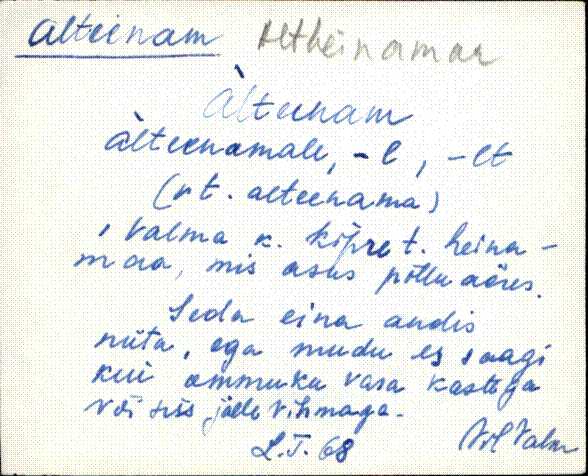 alteenam Altheinamaa
Àlteenam
àlteenamale, -l, -lt
(vt. alteenama)
, Valma k. Kipre t. heina-
maa, mis asus põllu ääres.
Seda eina andis
niita, ega mudu es saagi
kui ommuku vara kastega
või siis jälle vihmaga.
L.T. 68 Vil Valm